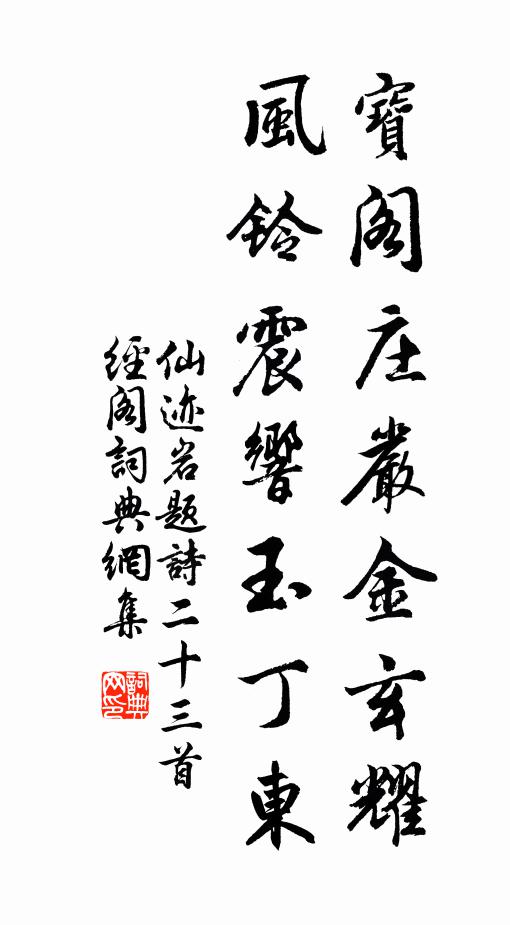 寶阁庄嚴金玄耀
風鈴震響玉丁東
仙迹岩题詩二十三首
經阁詞典網集
詞典网印